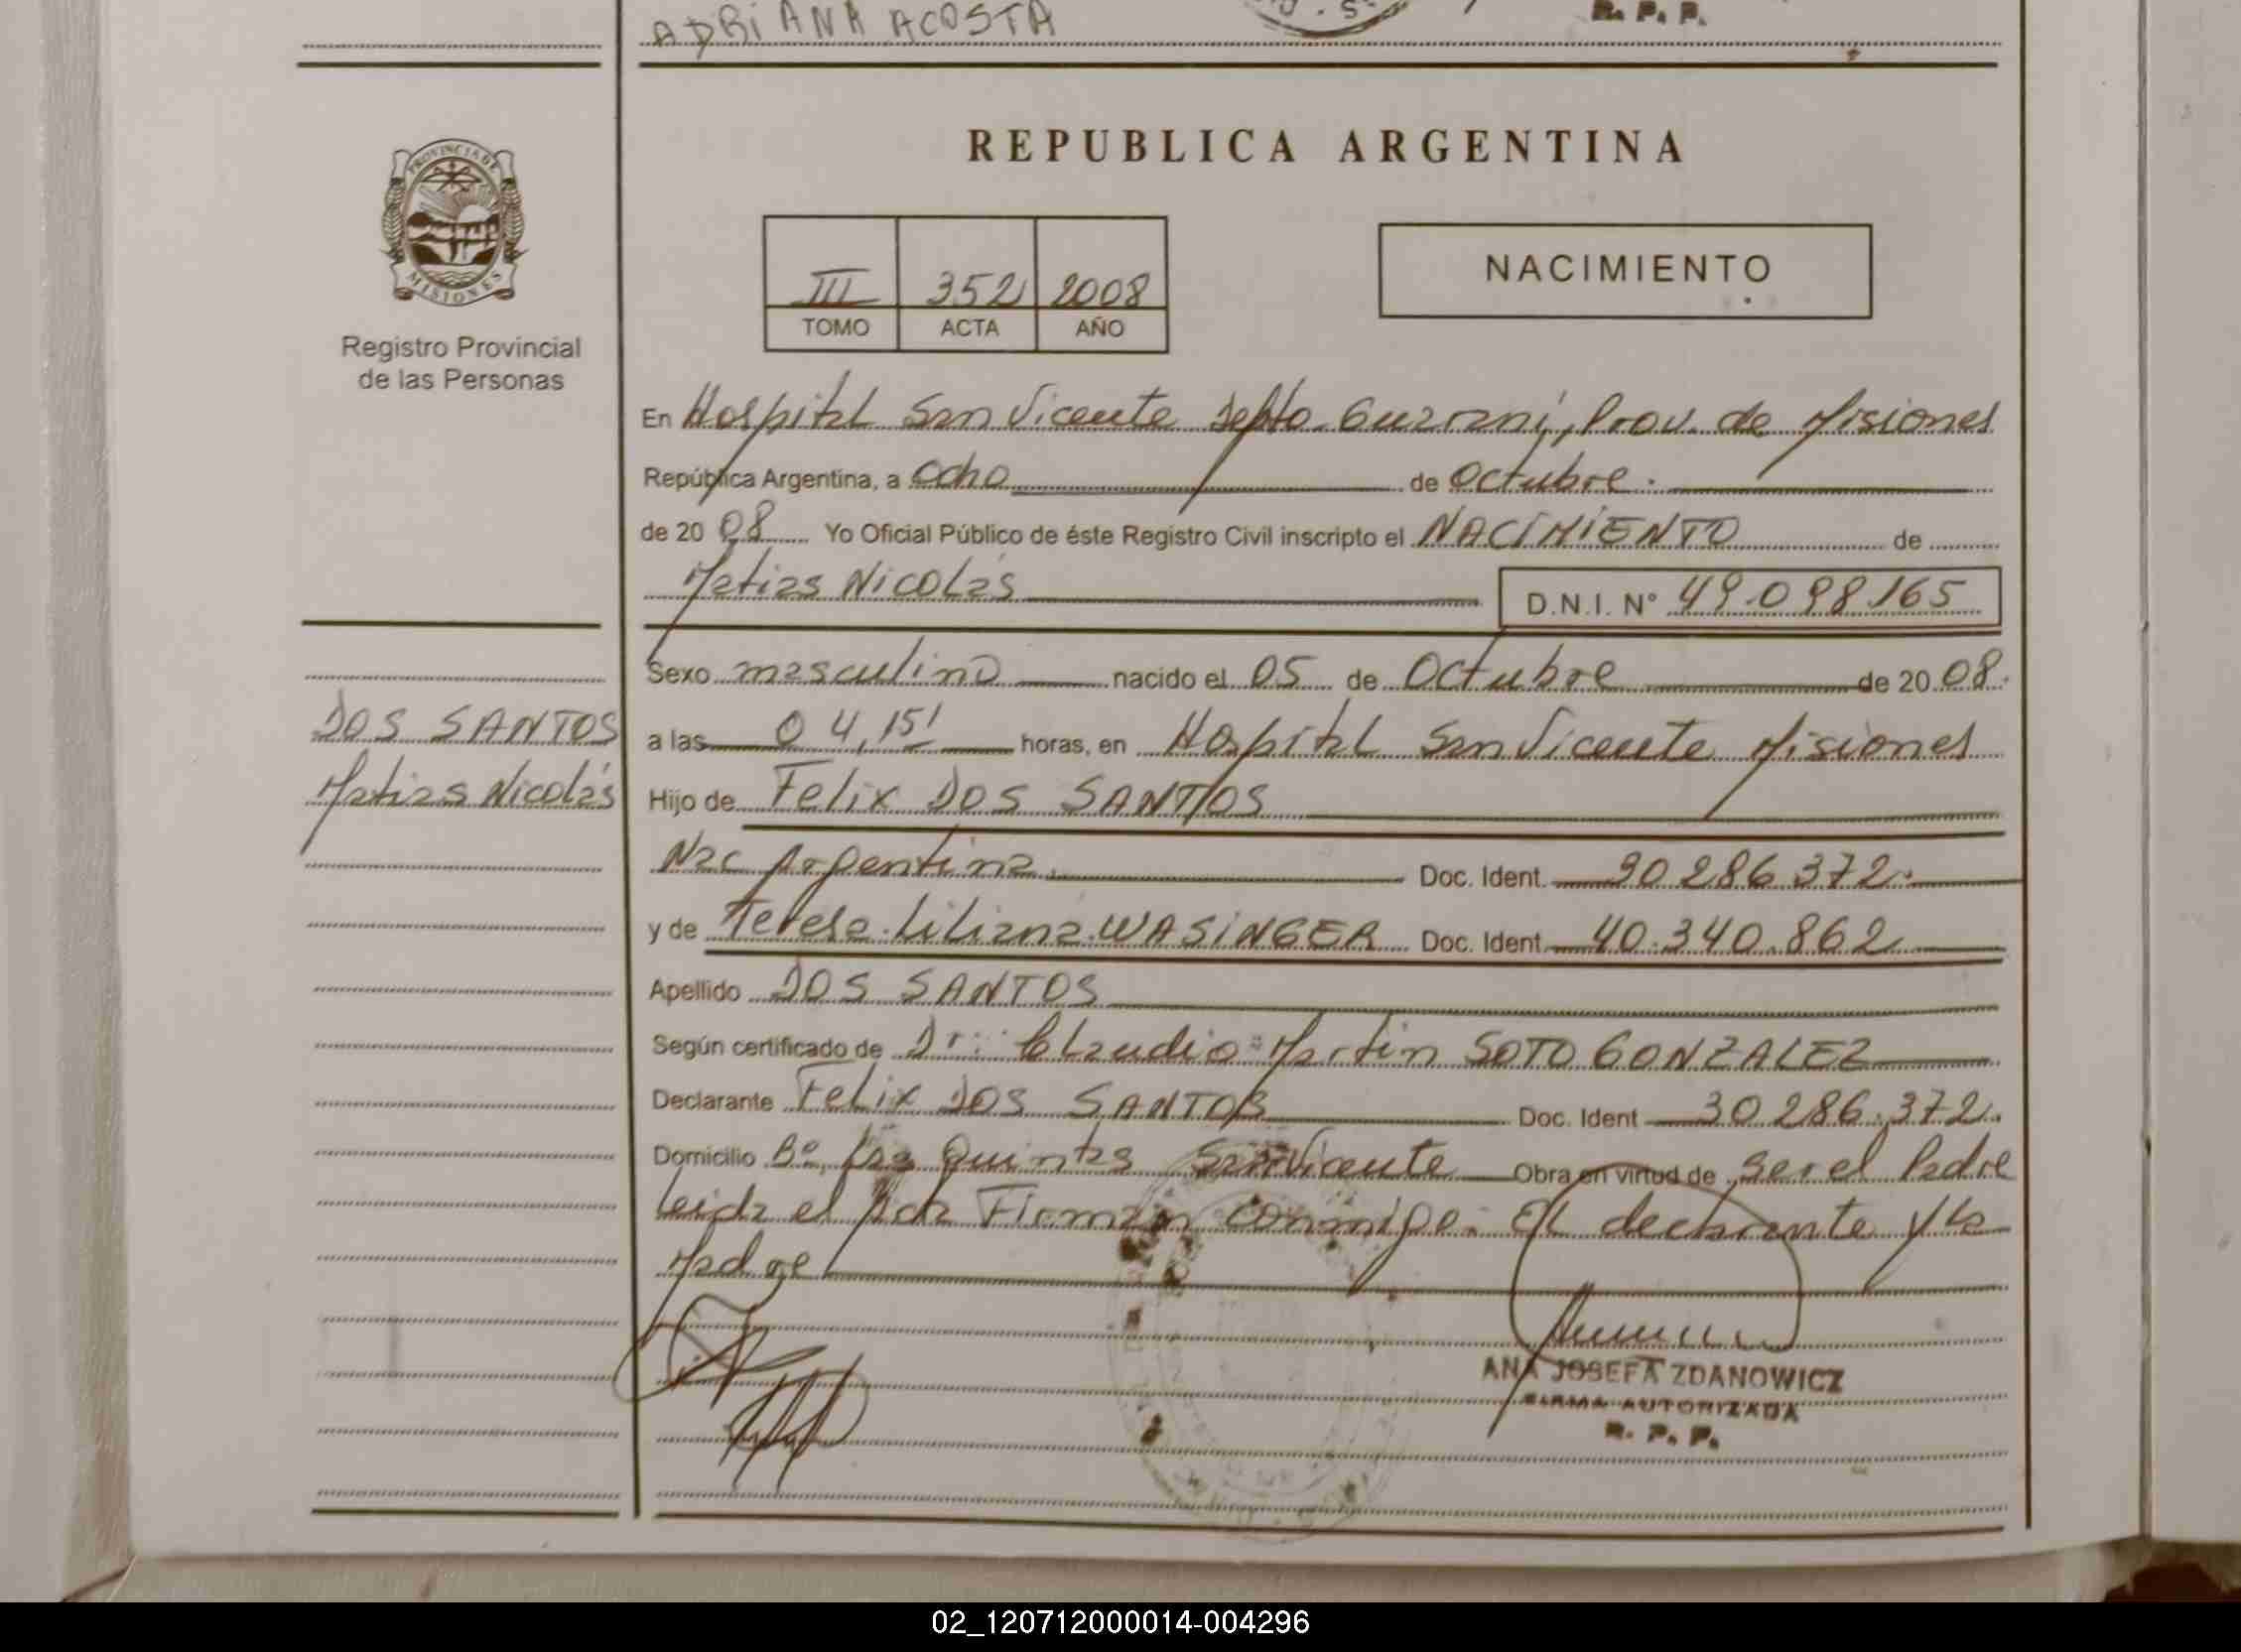 ADRIANA ACOSTA
R. P. P.
PROVINCIA DE
MISIONES
Registro Provincial
de las Personas
REPUBLICA ARGENTINA
III 352 2008
TOMO ACTA AÑO
NACIMIENTO
En Hospital San Vicente Depto. Guaraní, Prov. de Misiones
República Argentina, a ocho de Octubre.
de 20 08 Yo Oficial Público de éste Registro Civil inscripto el NACIMIENTO de
Matias Nicolás D.N.I. N° 49.098.165
Sexo masculino nacido el 05 de Octubre de 20 08.
a las 04,15' horas, en Hospital San Vicente Misiones
Hijo de Felix DOS SANTOS
Nac Argentina. Doc. Ident. 30 286 372.
y de Teresa Liliana WASINGER Doc. Ident. 40.340.862
Apellido DOS SANTOS
Según certificado de Dr: Claudio Martin SOTO GONZALEZ
Declarante Felix DOS SANTOS Doc. Ident 30 286.372.
Domicilio B° Las Quintas San Vicente Obra en virtud de ser el Padre
Leida el Acta Firman conmigo. El declarante y la
Madre
DOS SANTOS
Matias Nicolás
ANA JOSEFA ZDANOWICZ
FIRMA AUTORIZADA
R. P. P.
02_120712000014-004296